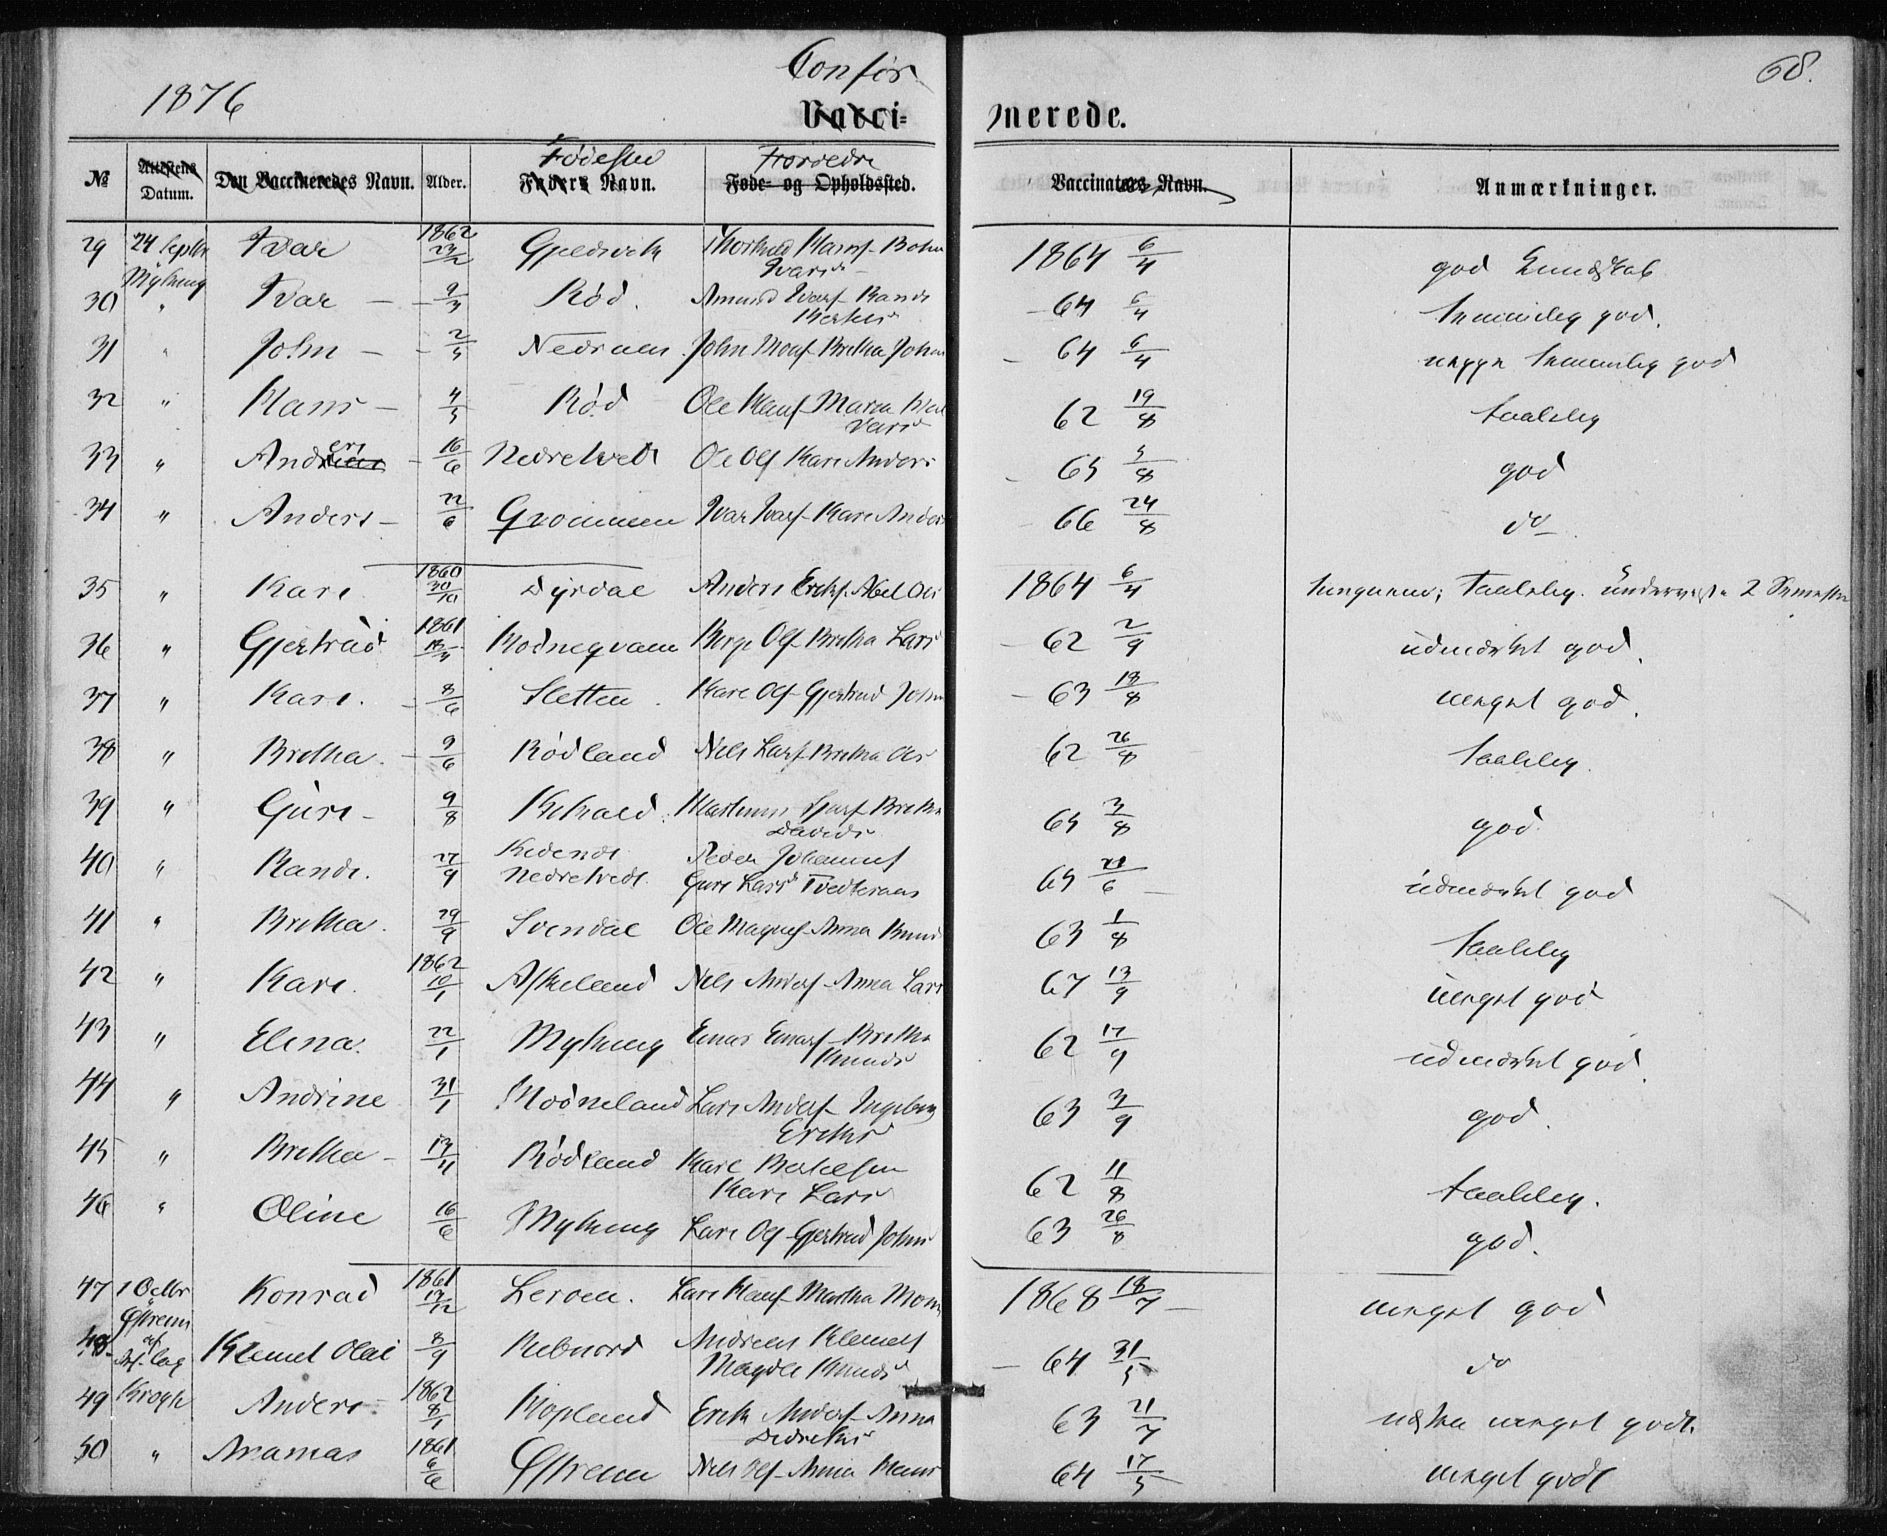 1876
Confir
68.
Vacci=
nerede.
№ Attestens Datum. Den Vaccineredes Navn. Alder. Fødested Faders Navn. Forældre Føde= og Opholdssted. Vaccinators Navn. Anmærkninger.
29 24 Septbr Ivar 1862 23/2 Gjelsvik Thorkild Hansf. 1864 6/4 god Kundskab
30 " Ivar — 9/3 Rød. Amund Ivarf 64 6/4 temmelig god.
31 " John — 2/5 Nedraas John Monsf Bretha Johns — 64 6/4 temmelig god
32 " Hans — 4/5 Rød Ole Hansf 62 19/8 taalelig
33 " Anders — 16/6 Nedretvedt Ole Olf Kari Anders 65 5/8 god
34 " Anders — 22/6 Grommen Ivar Ivarf Kari Anders 66 24/8 do
35 " Kari 1860 30/10 Dyrdal Anders Eriksf. Abel Ols 1864 6/4 taalelig. 2 Semestre
36 " Gjertrud 1861 Rødneqvam Børge Olf Bretha Lars — 62 2/9 udmærket god.
37 " Kari. — 8/6 Sletten Kare Olf Gjertrud Johns — 63 18/8 meget god.
38 " Bretha. — 9/6 Rødland Nels Larsf Bretha Ols 62 26/8 taalelig.
39 " Guri — 9/8 Davids 65 3/8 god.
40 " Randi. 27/9 Nedretvedt. Peder Johannesf
Guri Lars 65 21/6 udmærket god
41 " Bretha. 29/9 Svendal Ole Magnef Anna Knuds 63 1/8 taalelig
42 " Kari. 1862 10/1 Askeland Nels Andersf Anna Lars 67 13/9 meget god
43 " Elena. 22/1 Myking Einar Einarsf Bretha
Knuds 62 17/9 udmærket god.
44 " Andrine 31/1 Modneland Lars Andersf Ingeborg
Eriks 63 3/9 god.
45 " Bretha — 13/4 Rødland Kare Bertelsen
Kari Lars 62 11/8 taalelig.
46 " Oline 16/6 Myking Lars Olf Gjertrud Johns 63 26/8 god.
47 1 Octbr Konrad 1861 17/12 Leroen. Lars Hansf Martha Mons 1868 18/7 — meget god
48 Klemet Olai 8/9 Rebnord Andreas Klemetsf
Magdel Knuds — 64 31/5 do
49 Krogh Anders 1862 8/1 Hopland Erik Andersf Anna
Dedriks 63 21/7 meget godt.
50 " Aramas 1861 6/6 Østrem Nels Olf Anna Hans 64 17/5 meget godt